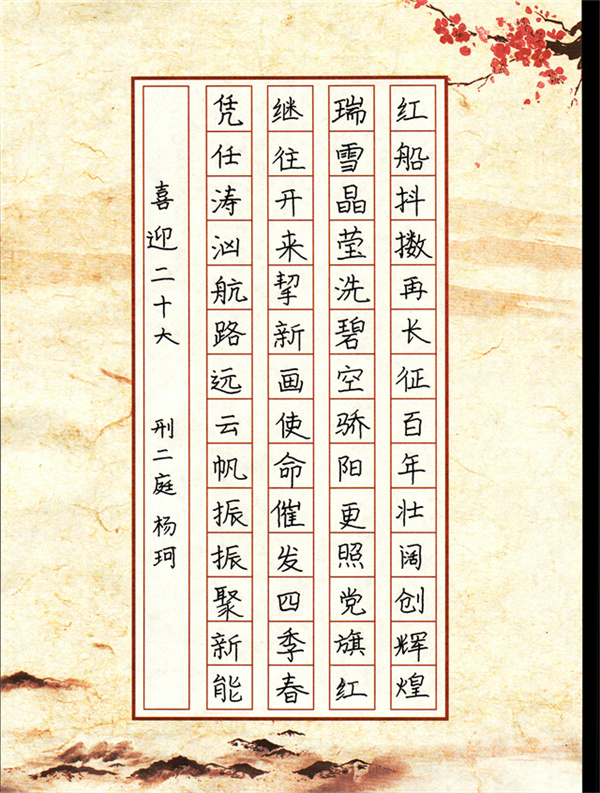 红船抖擞再长征百年壮阔创辉煌
瑞雪晶莹洗碧空骄阳更照党旗红
继往开来挈新画使命催发四季春
凭任涛汹航路远云帆振振聚新能
喜迎二十大 刑二庭 杨珂